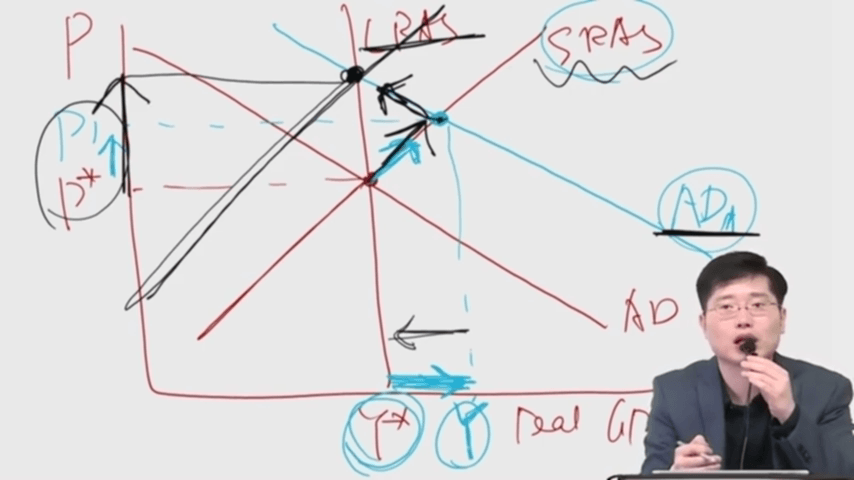 P
LRAS
SRAS
P1
P*
AD1
AD
Y*
Y
real